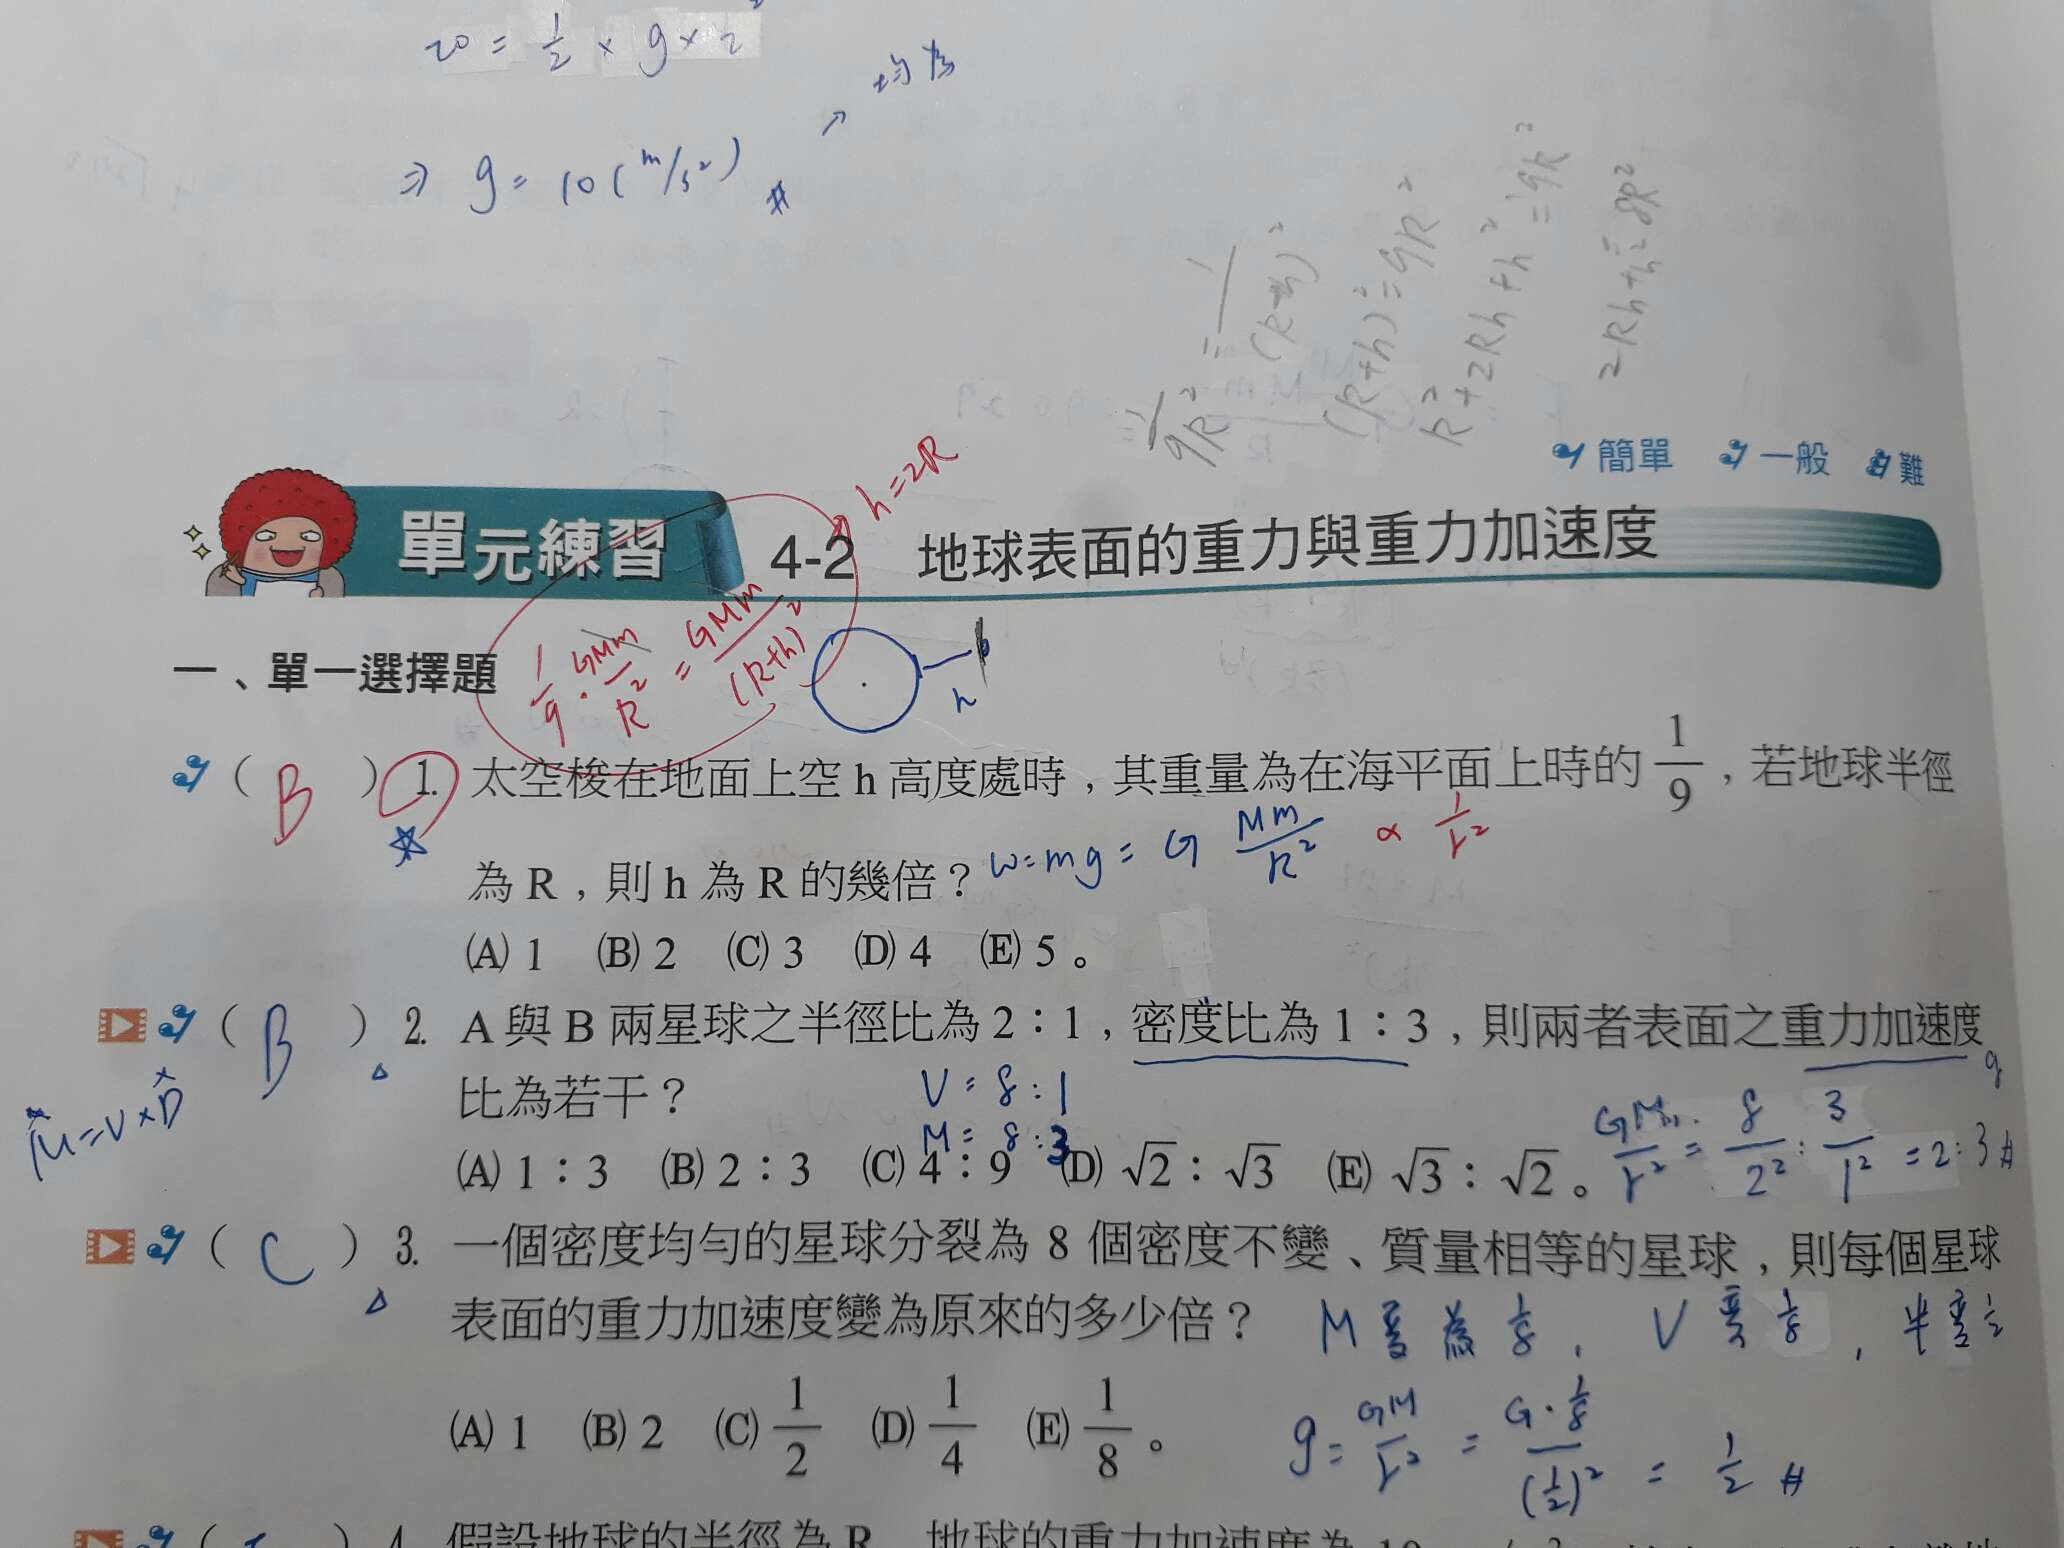 20 = 1/2 × g × 2²
⇒ g = 10 (m/s²) #
↗ 均為
1/9R² = 1/(R+h)²
(R+h)² = 9R²
R² + 2Rh + h² = 9R²
2Rh + h² = 8R²
簡單 一般 難
h = 2R
單元練習 4-2 地球表面的重力與重力加速度
1/9 · GMm/R² = GMm/(R+h)²
h
一、單一選擇題
( B ) 1. 太空梭在地面上空 h 高度處時，其重量為在海平面上時的 1/9，若地球半徑
為 R，則 h 為 R 的幾倍？ W = mg = G Mm/R² ∝ 1/r²
(A) 1 (B) 2 (C) 3 (D) 4 (E) 5。
( B ) 2. A 與 B 兩星球之半徑比為 2：1，密度比為 1：3，則兩者表面之重力加速度
g
比為若干？ V = 8 : 1
M = V × D
M = 8 : 3
(A) 1：3 (B) 2：3 (C) 4：9 (D) √2：√3 (E) √3：√2。 GMm/r² = 8/2² : 3/1² = 2:3 #
( C ) 3. 一個密度均勻的星球分裂為 8 個密度不變、質量相等的星球，則每個星球
表面的重力加速度變為原來的多少倍？ M 變為 1/8， V 變 1/8，半變 1/2
(A) 1 (B) 2 (C) 1/2 (D) 1/4 (E) 1/8。 g = GM/r² = G · 1/8/(1/2)² = 1/2 #
4. 假設地球的半徑為 R，地球的重力加速度為 10